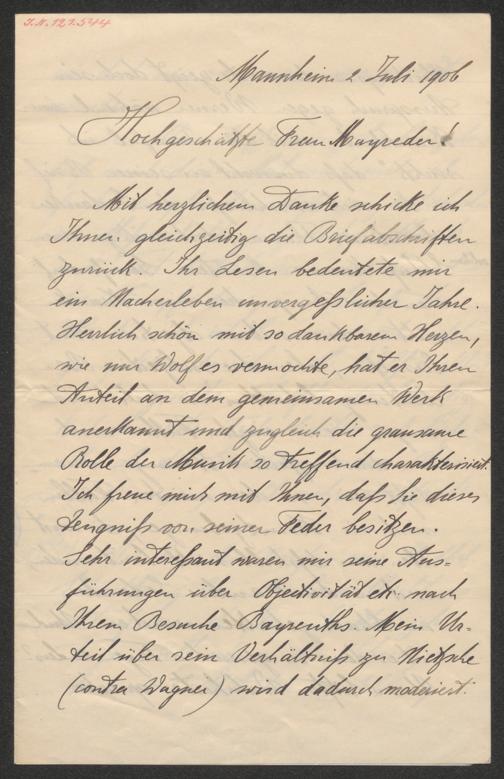 I.N. 121.544
Mannheim 2 Juli 1906
Hochgeschätzte Frau Mayreder!
Mit herzlichem Danke schicke ich
Ihnen gleichzeitig die Briefabschriften
zurück. Ihr Lesen bedeutete mir
ein Nacherleben unvergeßlicher Jahre.
Herrlich schön mit so dankbarem Herzen,
wie nur Wolf es vermochte, hat er Ihren
Anteil an dem gemeinsamen Werk
anerkannt und zugleich die grausame
Rolle der Musik so treffend charakterisiert.
Ich freue mich mit Ihnen, daß Sie dieses
Zeugniß von seiner Feder besitzen.
Sehr interessant waren mir seine Aus-
führungen über Objectivität etc. nach
Ihrem Besuche Bayreuths. Mein Ur-
teil über sein Verhältniß zu Nietzsche
(contra Wagner) wird dadurch moderiert.